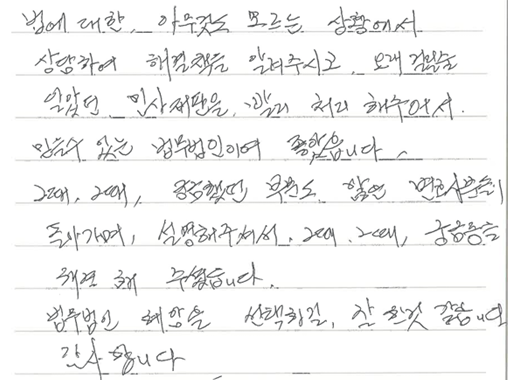 법에 대한, 아무것도 모르는 상황에서
상담하여 해결책을 알려주시고, 오래 걸릴줄
알았던 민사재판을, 빨리 처리 해주어서.
믿을수 있는 법무법인이여 좋았습니다.
그때, 그때, 궁금했던 부분도, 담당 변호사분이
돌아가며, 설명해주셔서, 그때 그때, 궁금증을
해결 해 주셨습니다.
법무법인 혜안을 선택하길, 잘 한것 같습니다
감사합니다